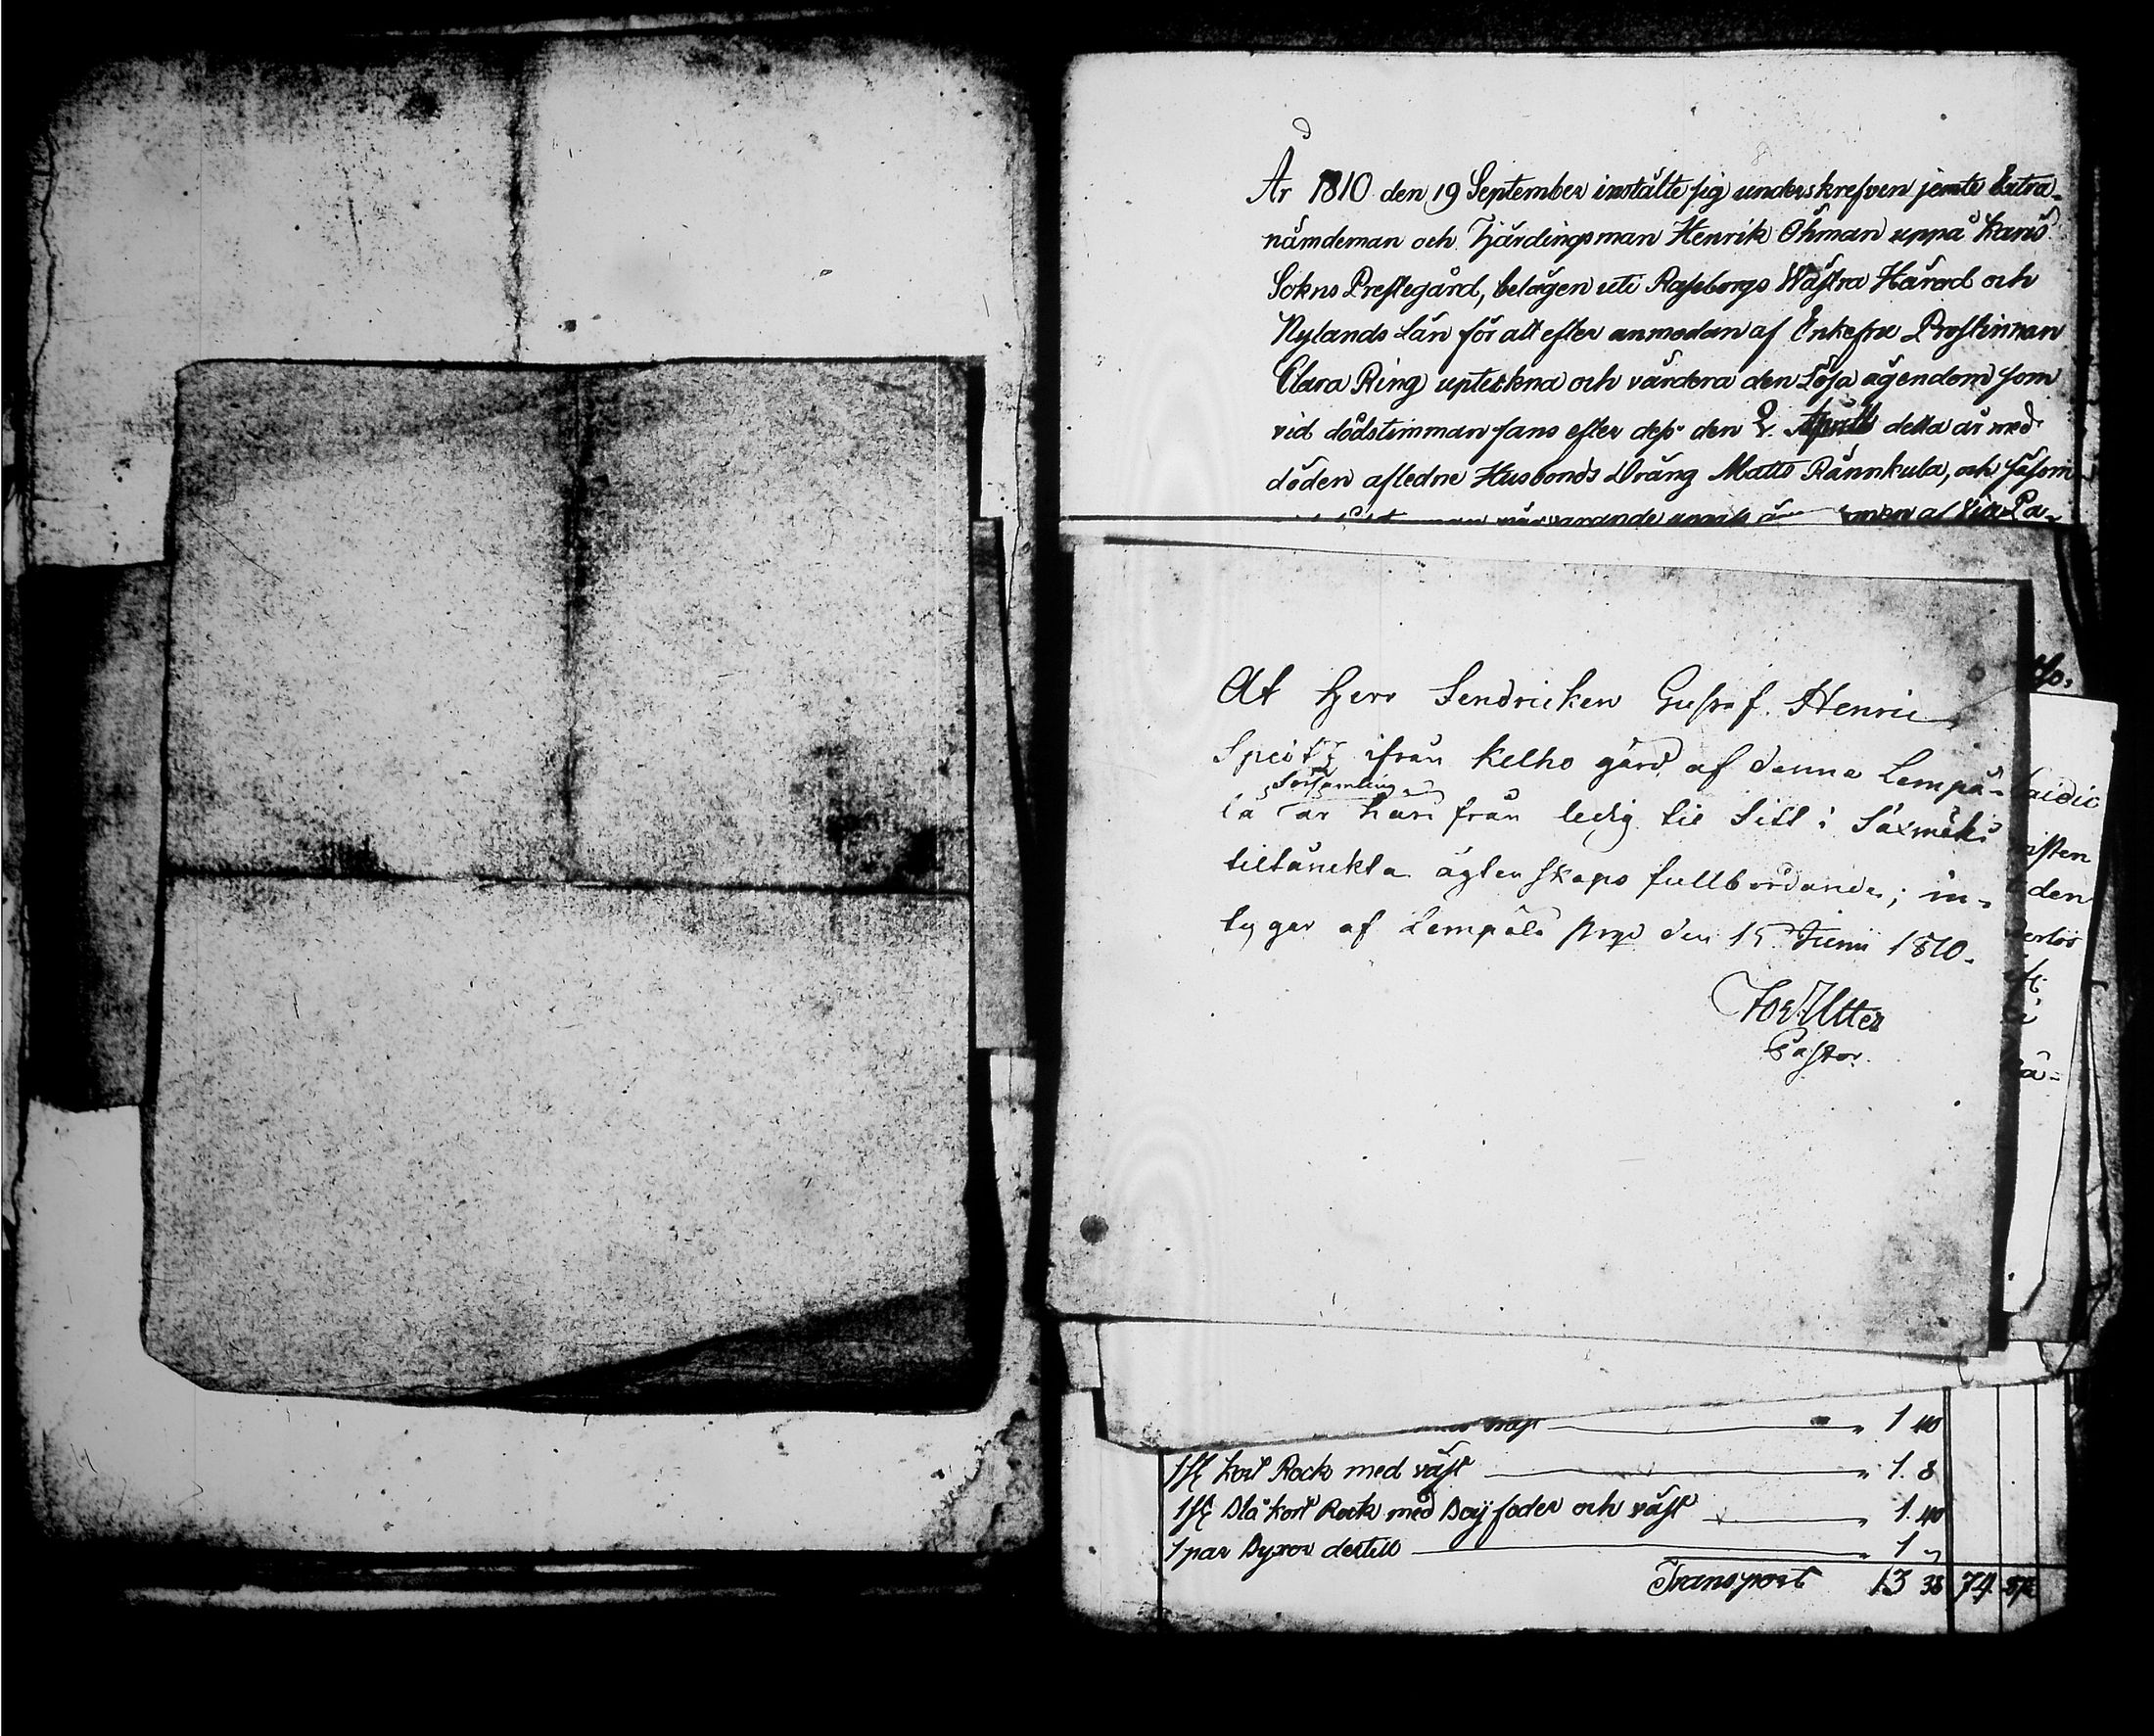 År 1810 den 19 September instälte sig underskrefven jemte Extra-
nämdeman och Fjärdingsman Henrik Öhman uppå Karis
Sokns Prestegård, belägen uti Raseborgs Wästra Härad och
Nylands Län för att efter anmodan af Enkefru Prostinnan
Clara Ring uptekna och värdera den Lösa ägendom som
vid dödstimman fans efter dess den 2. April detta år med
döden afledne Husbonds Dräng Matts Rännkula, och såsom
närvarande
At Herr Gustaf Henric
Speitz ifrån Kelho gård af denna Lempä-
Församling
lä är härifrån ledig til sitt i Saxmäki
tiltänckta ägtenskaps fullbordande; in-
tygar af Lempälä den 15 Junii 1810.
Utter
Pastor.
aisten
den
1 40
1 st Kort Rock med väst " 1. 8
1 st Blå kort Rock med Boij foder och väst " 1. 40
1 par Byxor dertill " 1 "
Transport 13 38 74